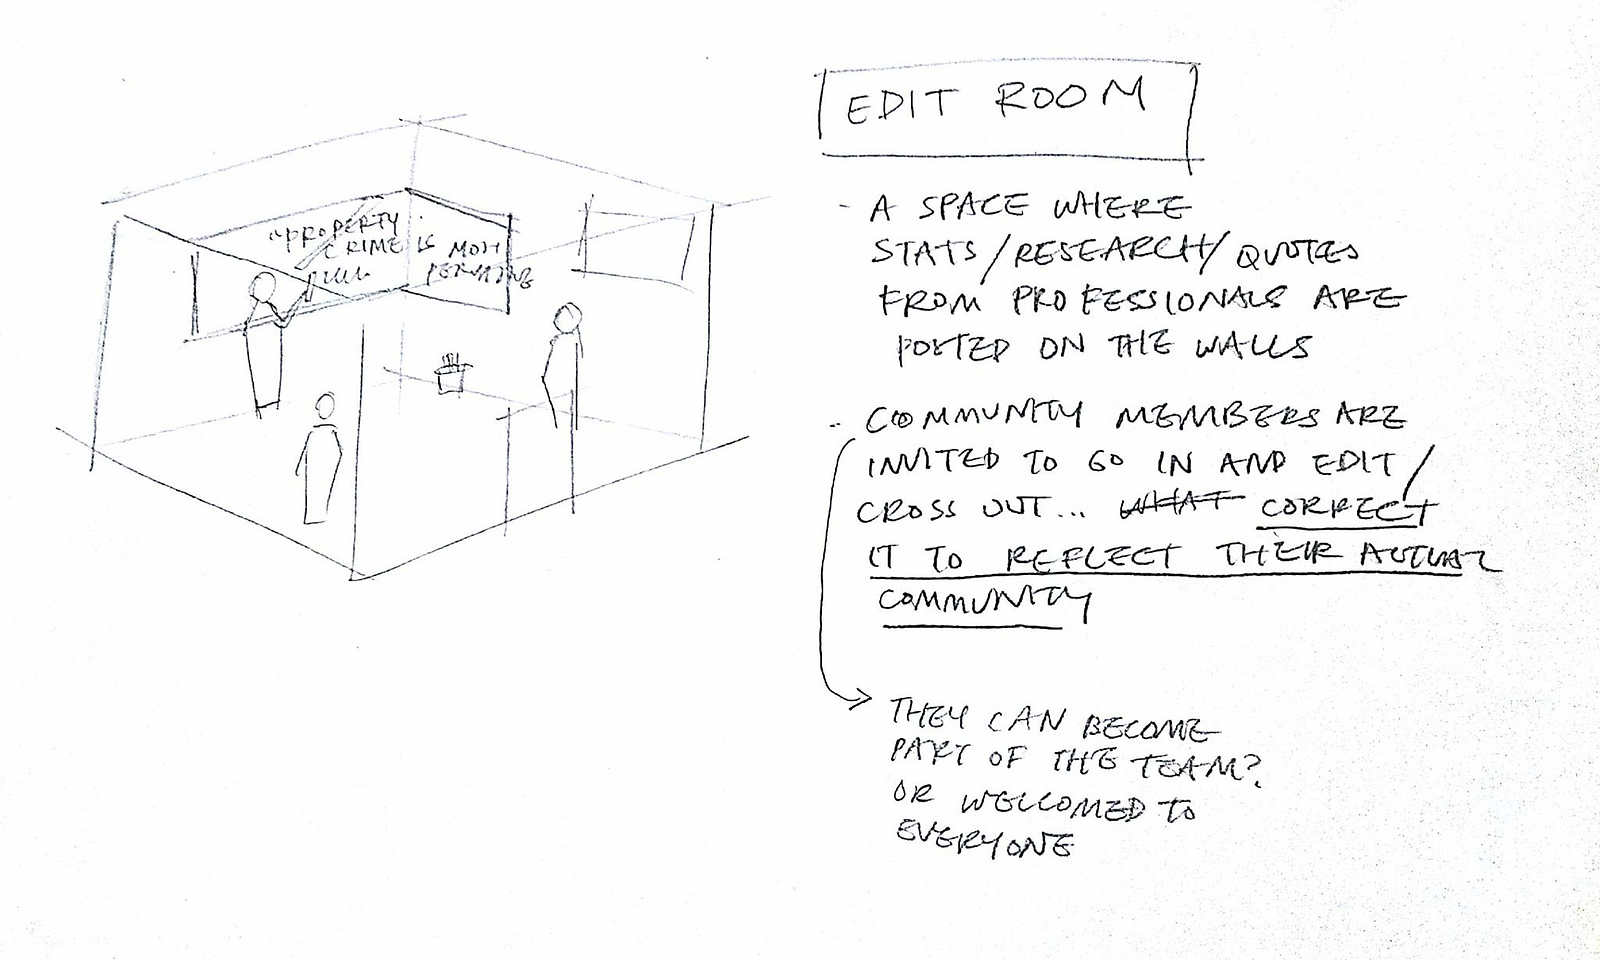 "PROPERTY
CRIME IS MOST
EDIT ROOM
- A SPACE WHERE
STATS/RESEARCH/QUOTES
FROM PROFESSIONALS ARE
POSTED ON THE WALLS
- COMMUNITY MEMBERS ARE
INVITED TO GO IN AND EDIT/
CROSS OUT... WHAT CORRECT
IT TO REFLECT THEIR ACTUAL
COMMUNITY
THEY CAN BECOME
PART OF THE TEAM?
OR WELCOMED TO
EVERYONE